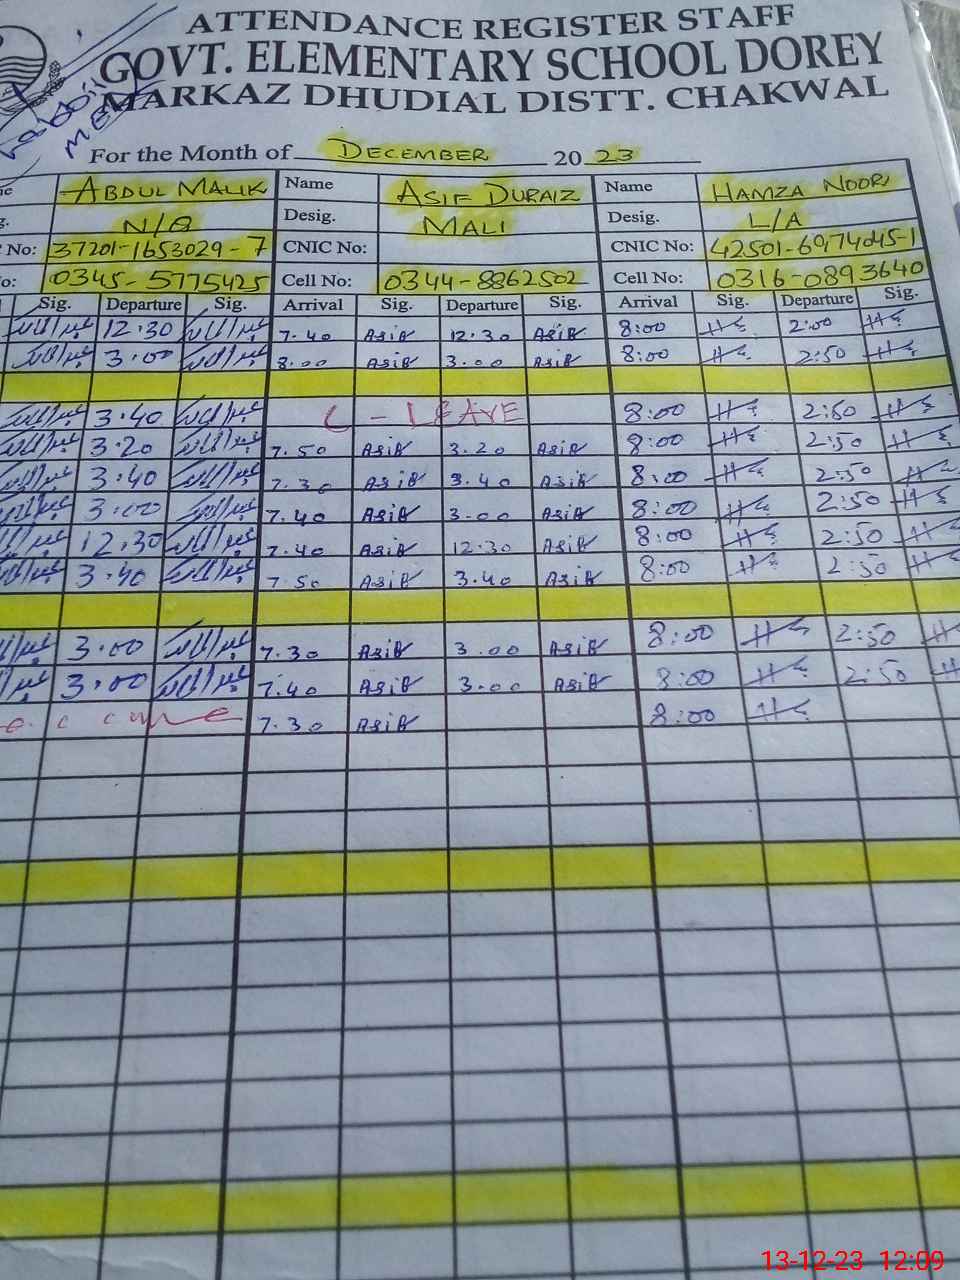 ATTENDANCE REGISTER STAFF
GOVT. ELEMENTARY SCHOOL DOREY
MARKAZ DHUDIAL DISTT. CHAKWAL
For the Month of DECEMBER 20 23
ABDUL MALIK Name ASIF DURAIZ Name HAMZA NOORI
N/Q Desig. MALI Desig. L/A
No: 37201-1653029-7 CNIC No: CNIC No: 42501-6974045-1
0345-5775425 Cell No: 0344-8862502 Cell No: 0316-0893640
Sig. Departure Sig. Arrival Sig. Departure Sig. Arrival Sig. Departure Sig.
عبدالمالک 12.30 عبدالمالک 7.40 Asif 12.30 Asif 8:00 2:00
عبدالمالک 3.00 عبدالمالک 8.00 Asif 3.00 Asif 8:00 2:50
عبدالمالک 3.40 عبدالمالک C - LEAVE 8:00 2:50
عبدالمالک 3.20 عبدالمالک 7.50 Asif 3.20 Asif 8:00 2:50
عبدالمالک 3.40 عبدالمالک 7.30 Asif 3.40 Asif 8:00 2:50
عبدالمالک 3.00 عبدالمالک 7.40 Asif 3.00 Asif 8:00 2:50
عبدالمالک 12.30 عبدالمالک 7.40 Asif 12.30 Asif 8:00 2:50
عبدالمالک 3.40 عبدالمالک 7.50 Asif 3.40 Asif 8:00 2:50
عبدالمالک 3.00 عبدالمالک 7.30 Asif 3.00 Asif 8:00 2:50
عبدالمالک 3.00 عبدالمالک 7.40 Asif 3.00 Asif 8:00 2:50
7.30 Asif 8:00
13-12-23 12:09